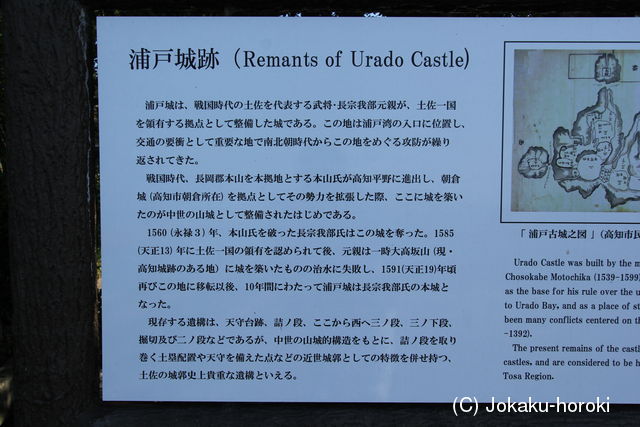 浦戸城跡 (Remants of Urado Castle)
浦戸城は、戦国時代の土佐を代表する武将・長宗我部元親が、土佐一国
を領有する拠点として整備した城である。この地は浦戸湾の入口に位置し、
交通の要衝として重要な地で南北朝時代からこの地をめぐる攻防が繰り
返されてきた。
戦国時代、長岡郡本山を本拠地とする本山氏が高知平野に進出し、朝倉
城(高知市朝倉所在)を拠点としてその勢力を拡張した際、ここに城を築い
たのが中世の山城として整備されたはじめである。
1560(永禄3)年、本山氏を破った長宗我部氏はこの城を奪った。1585
(天正13)年に土佐一国の領有を認められて後、元親は一時大高坂山(現・
高知城跡のある地)に城を築いたものの治水に失敗し、1591(天正19)年頃
再びこの地に移転以後、10年間にわたって浦戸城は長宗我部氏の本城と
なった。
現存する遺構は、天守台跡、詰ノ段、ここから西へ三ノ段、三ノ下段、
堀切及び二ノ段などであるが、中世の山城的構造をもとに、詰ノ段を取り
巻く土塁配置や天守を備えた点などの近世城郭としての特徴を併せ持つ、
土佐の城郭史上貴重な遺構といえる。
「浦戸古城之図」(高知市民
Urado Castle was built by the
Chosokabe Motochika (1539-1599
as the base for his rule over the
to Urado Bay, and as a place of
been many conflicts centered on
-1392).
The present remains of the
castles, and are considered to be
Tosa Region.
(C) Jokaku-horoki